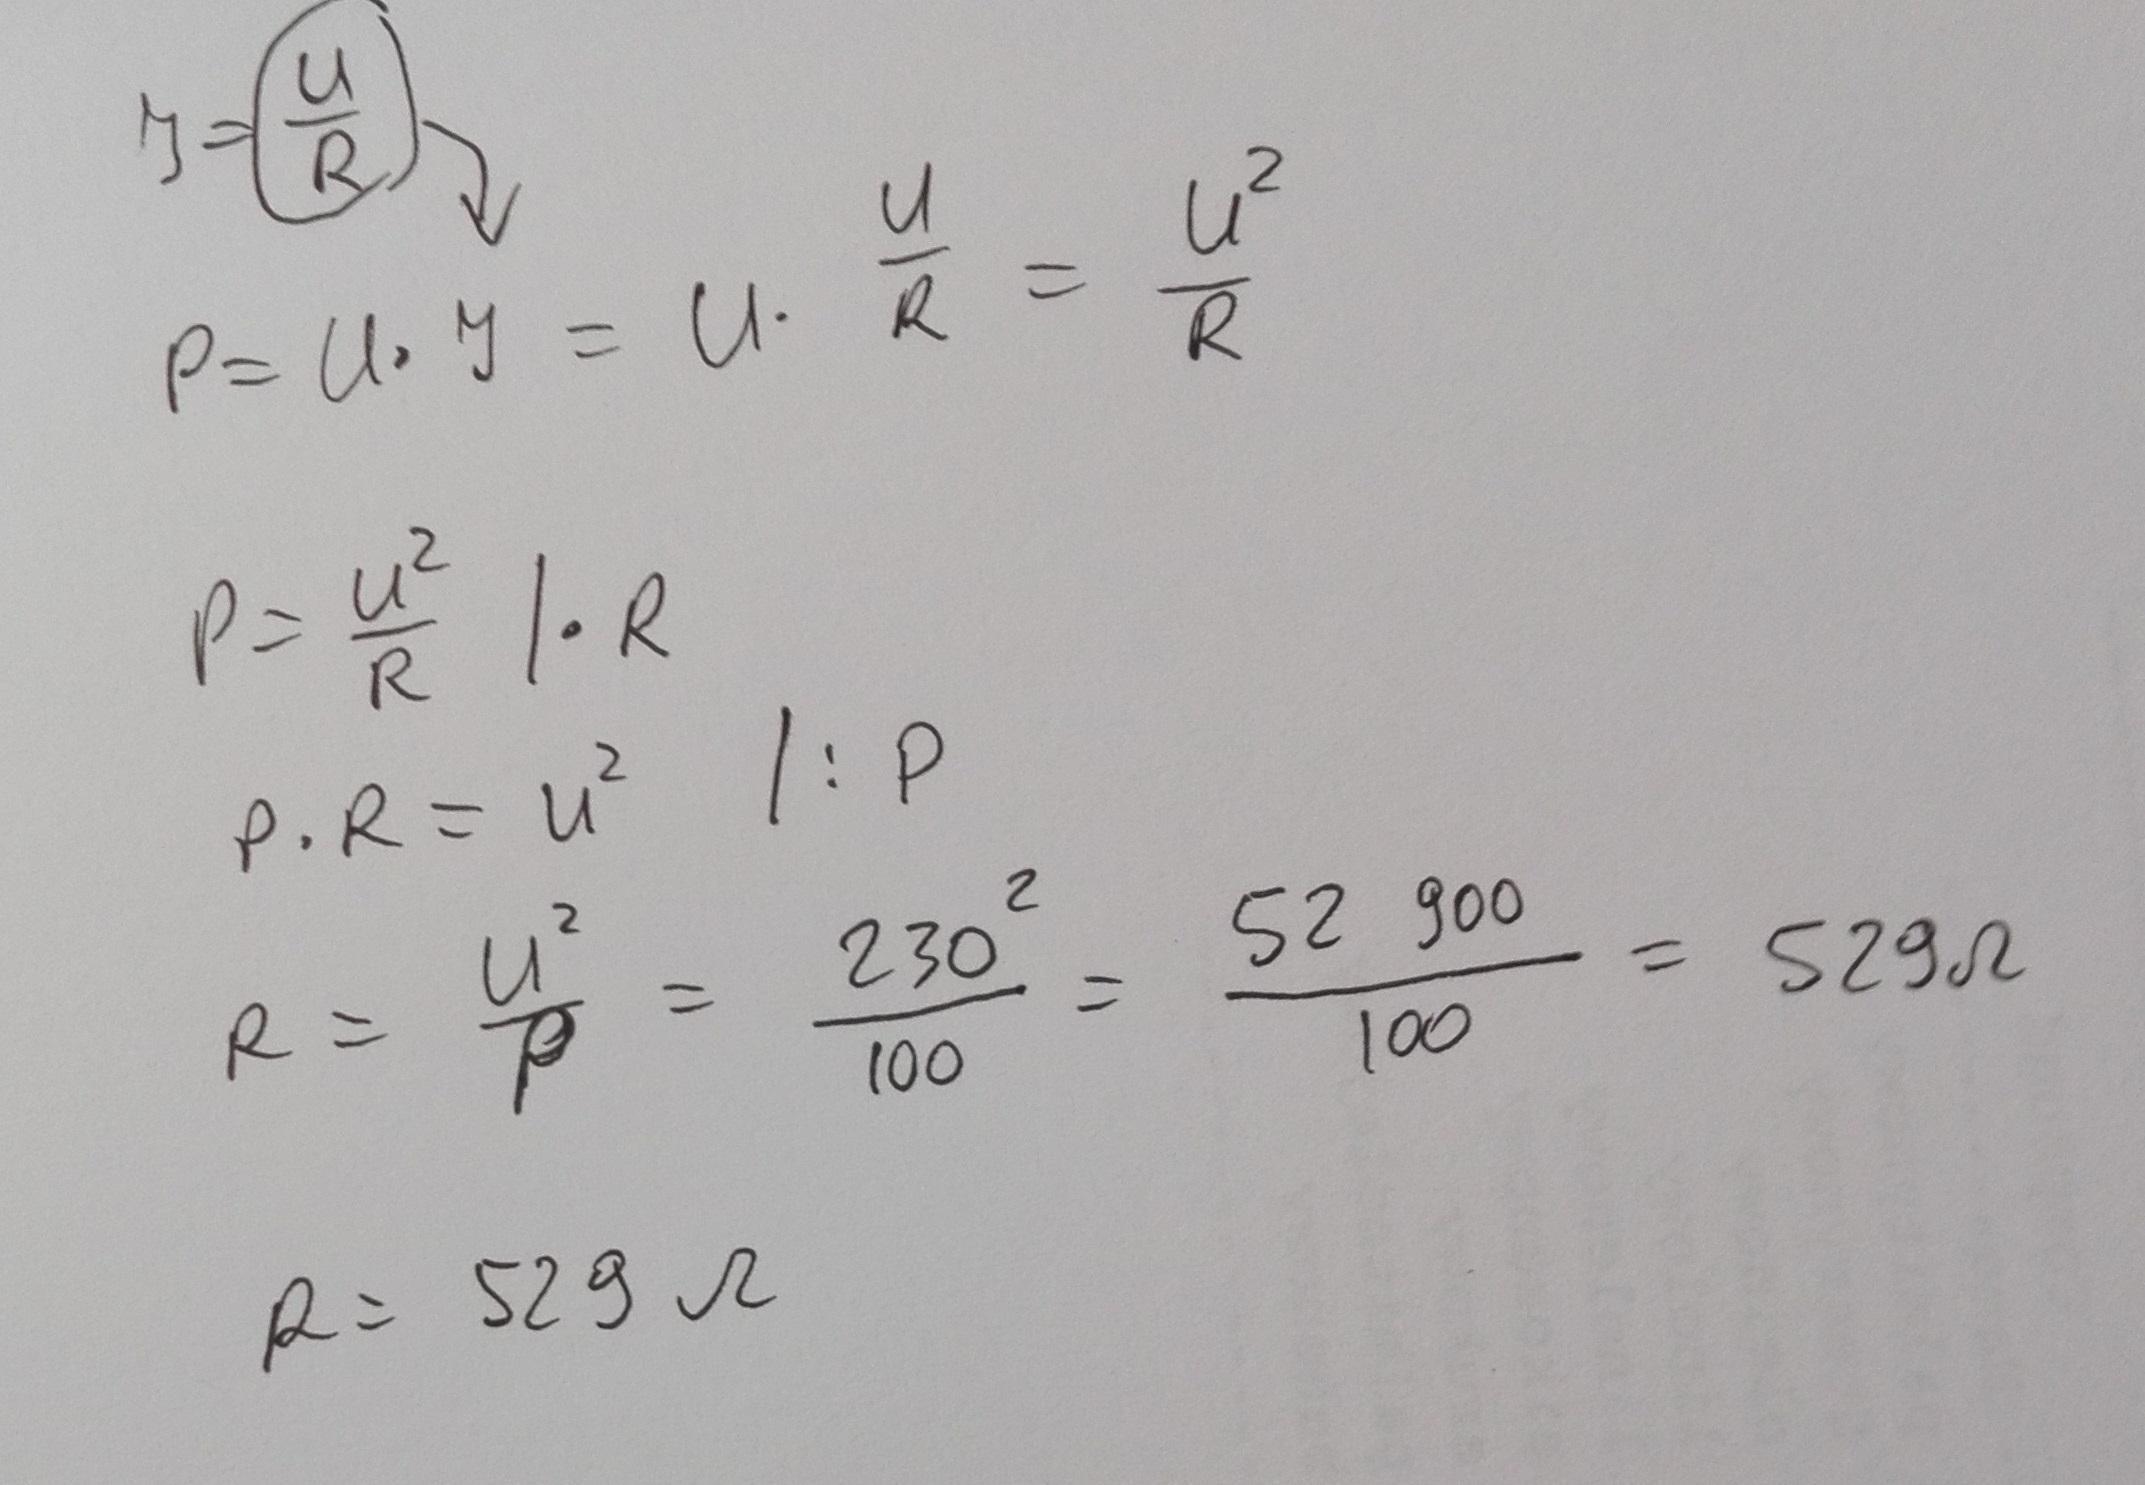 I = U/R
P = U · I = U · U/R = U²/R
P = U²/R /· R
P · R = U² /: P
R = U²/P = 230²/100 = 52 900/100 = 529Ω
R = 529 Ω